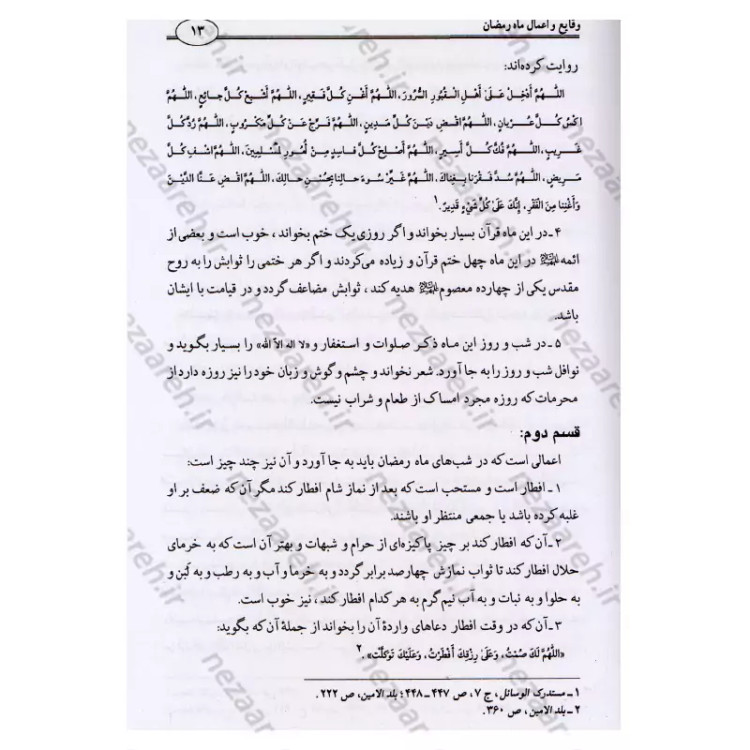 وقایع و اعمال ماه رمضان
۱۳
روایت کرده‌اند:
اللّهُمَّ أَدْخِلْ عَلىٰ أَهْلِ الْقُبُورِ السُّرُورَ، اللّهُمَّ أَغْنِ كُلَّ فَقِيرٍ، اللّهُمَّ أَشْبِعْ كُلَّ جائِعٍ، اللّهُمَّ
اكْسُ كُلَّ عُرْيانٍ، اللّهُمَّ اقْضِ دَيْنَ كُلِّ مَدِينٍ، اللّهُمَّ فَرِّجْ عَنْ كُلِّ مَكْرُوبٍ، اللّهُمَّ رُدَّ كُلَّ
غَرِيبٍ، اللّهُمَّ فُكَّ كُلَّ أَسِيرٍ، اللّهُمَّ أَصْلِحْ كُلَّ فاسِدٍ مِنْ أُمُورِ المُسْلِمِينَ، اللّهُمَّ اشْفِ كُلَّ
مَرِيضٍ، اللّهُمَّ سُدَّ فَقْرَنا بِغِناكَ، اللّهُمَّ غَيِّرْ سُوءَ حالِنا بِحُسْنِ حالِكَ، اللّهُمَّ اقْضِ عَنَّا الدَّيْنَ
وَأَغْنِنا مِنَ الْفَقْرِ، إِنَّكَ عَلىٰ كُلِّ شَيْءٍ قَدِيرٌ.۱
۴ ـ در این ماه قرآن بسیار بخواند و اگر روزی یک ختم بخواند، خوب است و بعضی از
ائمه در این ماه چهل ختم قرآن و زیاده می‌کردند و اگر هر ختمی را ثوابش را به روح
مقدس یکی از چهارده معصوم هدیه کند، ثوابش مضاعف گردد و در قیامت با ایشان
باشد.
۵ ـ در شب و روز این ماه ذکر صلوات و استغفار و «لا اله الاّ الله» را بسیار بگوید و
نوافل شب و روز را به جا آورد. شعر نخواند و چشم و گوش و زبان خود را نیز روزه دارد از
محرمات که روزه مجرد امساک از طعام و شراب نیست.
قسم دوم:
اعمالی است که در شب‌های ماه رمضان باید به جا آورد و آن نیز چند چیز است:
۱ ـ افطار است و مستحب است که بعد از نماز شام افطار کند مگر آن که ضعف بر او
غلبه کرده باشد یا جمعی منتظر او باشند.
۲ ـ آن که افطار کند بر چیز پاکیزه‌ای از حرام و شبهات و بهتر آن است که به خرمای
حلال افطار کند تا ثواب نمازش چهارصد برابر گردد و به خرما و آب و به رطب و به لَبَن و
به حلوا و به نبات و به آب نیم گرم به هر کدام افطار کند، نیز خوب است.
۳ ـ آن که در وقت افطار دعاهای واردهٔ آن را بخواند از جملهٔ آن که بگوید:
«اللّهُمَّ لَكَ صُمْتُ، وَعَلىٰ رِزْقِكَ أَفْطَرْتُ، وَعَلَيْكَ تَوَكَّلْتُ».۲
۱ ـ مستدرک الوسائل، ج ۷، ص ۴۴۷ ـ ۴۴۸؛ بلد الامین، ص ۲۲۲.
۲ ـ بلد الامین، ص ۳۶۰.
nezaareh.ir